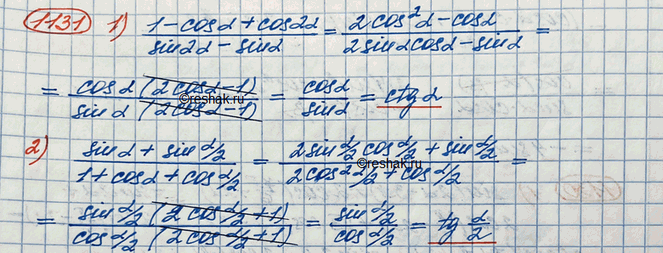 1131 1) (1 - cos α + cos 2α)/(sin 2α - sin α) = (2 cos² α - cos α)/(2 sin α cos α - sin α) =
= (cos α (2 cos α - 1))/(sin α (2 cos α - 1)) = cos α/sin α = ctg α
©reshak.ru
2) (sin α + sin α/2)/(1 + cos α + cos α/2) = (2 sin α/2 cos α/2 + sin α/2)/(2 cos² α/2 + cos α/2) =
©reshak.ru
= (sin α/2 (2 cos α/2 + 1))/(cos α/2 (2 cos α/2 + 1)) = (sin α/2)/(cos α/2) = tg α/2